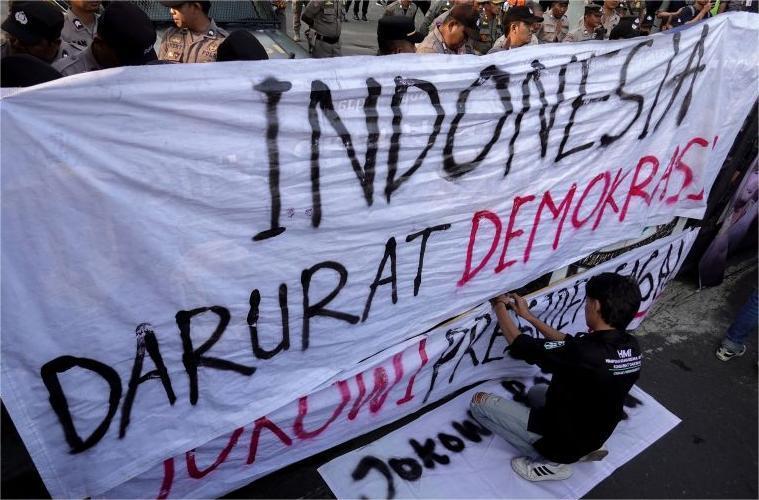 INDONESIA
DARURAT DEMOKRASI
JOKOWI PRESIDEN GAGAL
JOKOWI
HMI